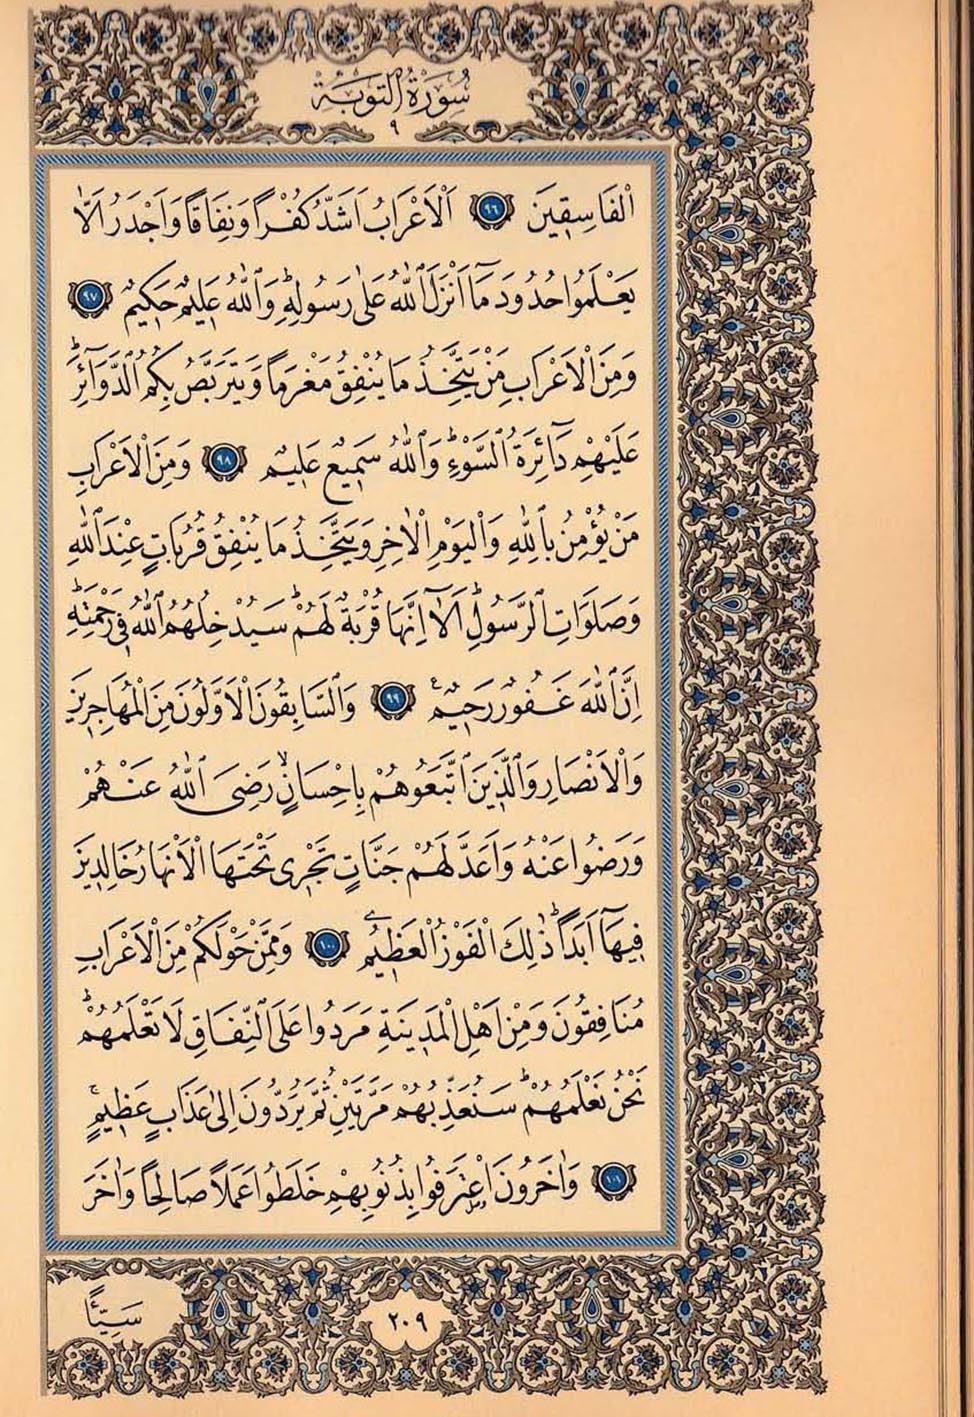 سُورَةُ التَّوْبَةِ
٩
الْفَاسِقِينَ ٩٦ اَلْاَعْرَابُ اَشَدُّ كُفْرًا وَنِفَاقًا وَاَجْدَرُ اَلَّا
يَعْلَمُوا حُدُودَ مَٓا اَنْزَلَ اللّٰهُ عَلٰى رَسُولِهِؕ وَاللّٰهُ عَلِيمٌ حَكِيمٌ ٩٧
وَمِنَ الْاَعْرَابِ مَنْ يَتَّخِذُ مَا يُنْفِقُ مَغْرَمًا وَيَتَرَبَّصُ بِكُمُ الدَّوَٓائِرَؕ
عَلَيْهِمْ دَٓائِرَةُ السَّوْءِؕ وَاللّٰهُ سَمِيعٌ عَلِيمٌ ٩٨ وَمِنَ الْاَعْرَابِ
مَنْ يُؤْمِنُ بِاللّٰهِ وَالْيَوْمِ الْاٰخِرِ وَيَتَّخِذُ مَا يُنْفِقُ قُرُبَاتٍ عِنْدَ اللّٰهِ
وَصَلَوَاتِ الرَّسُولِؕ اَلَٓا اِنَّهَا قُرْبَةٌ لَهُمْؕ سَيُدْخِلُهُمُ اللّٰهُ فِى رَحْمَتِهِؕ
اِنَّ اللّٰهَ غَفُورٌ رَحِيمٌ ٩٩ وَالسَّابِقُونَ الْاَوَّلُونَ مِنَ الْمُهَاجِرِينَ
وَالْاَنْصَارِ وَالَّذِينَ اتَّبَعُوهُمْ بِاِحْسَانٍۙ رَضِىَ اللّٰهُ عَنْهُمْ
وَرَضُوا عَنْهُ وَاَعَدَّ لَهُمْ جَنَّاتٍ تَجْرِى تَحْتَهَا الْاَنْهَارُ خَالِدِينَ
فِيهَٓا اَبَدًاؕ ذٰلِكَ الْفَوْزُ الْعَظِيمُ ١٠٠ وَمِمَّنْ حَوْلَكُمْ مِنَ الْاَعْرَابِ
مُنَافِقُونَ وَمِنْ اَهْلِ الْمَدِينَةِ مَرَدُوا عَلَى النِّفَاقِ لَا تَعْلَمُهُمْؕ
نَحْنُ نَعْلَمُهُمْؕ سَنُعَذِّبُهُمْ مَرَّتَيْنِ ثُمَّ يُرَدُّونَ اِلٰى عَذَابٍ عَظِيمٍ
١٠١ وَاٰخَرُونَ اعْتَرَفُوا بِذُنُوبِهِمْ خَلَطُوا عَمَلًا صَالِحًا وَاٰخَرَ
٢٠٩
سَيِّئًا